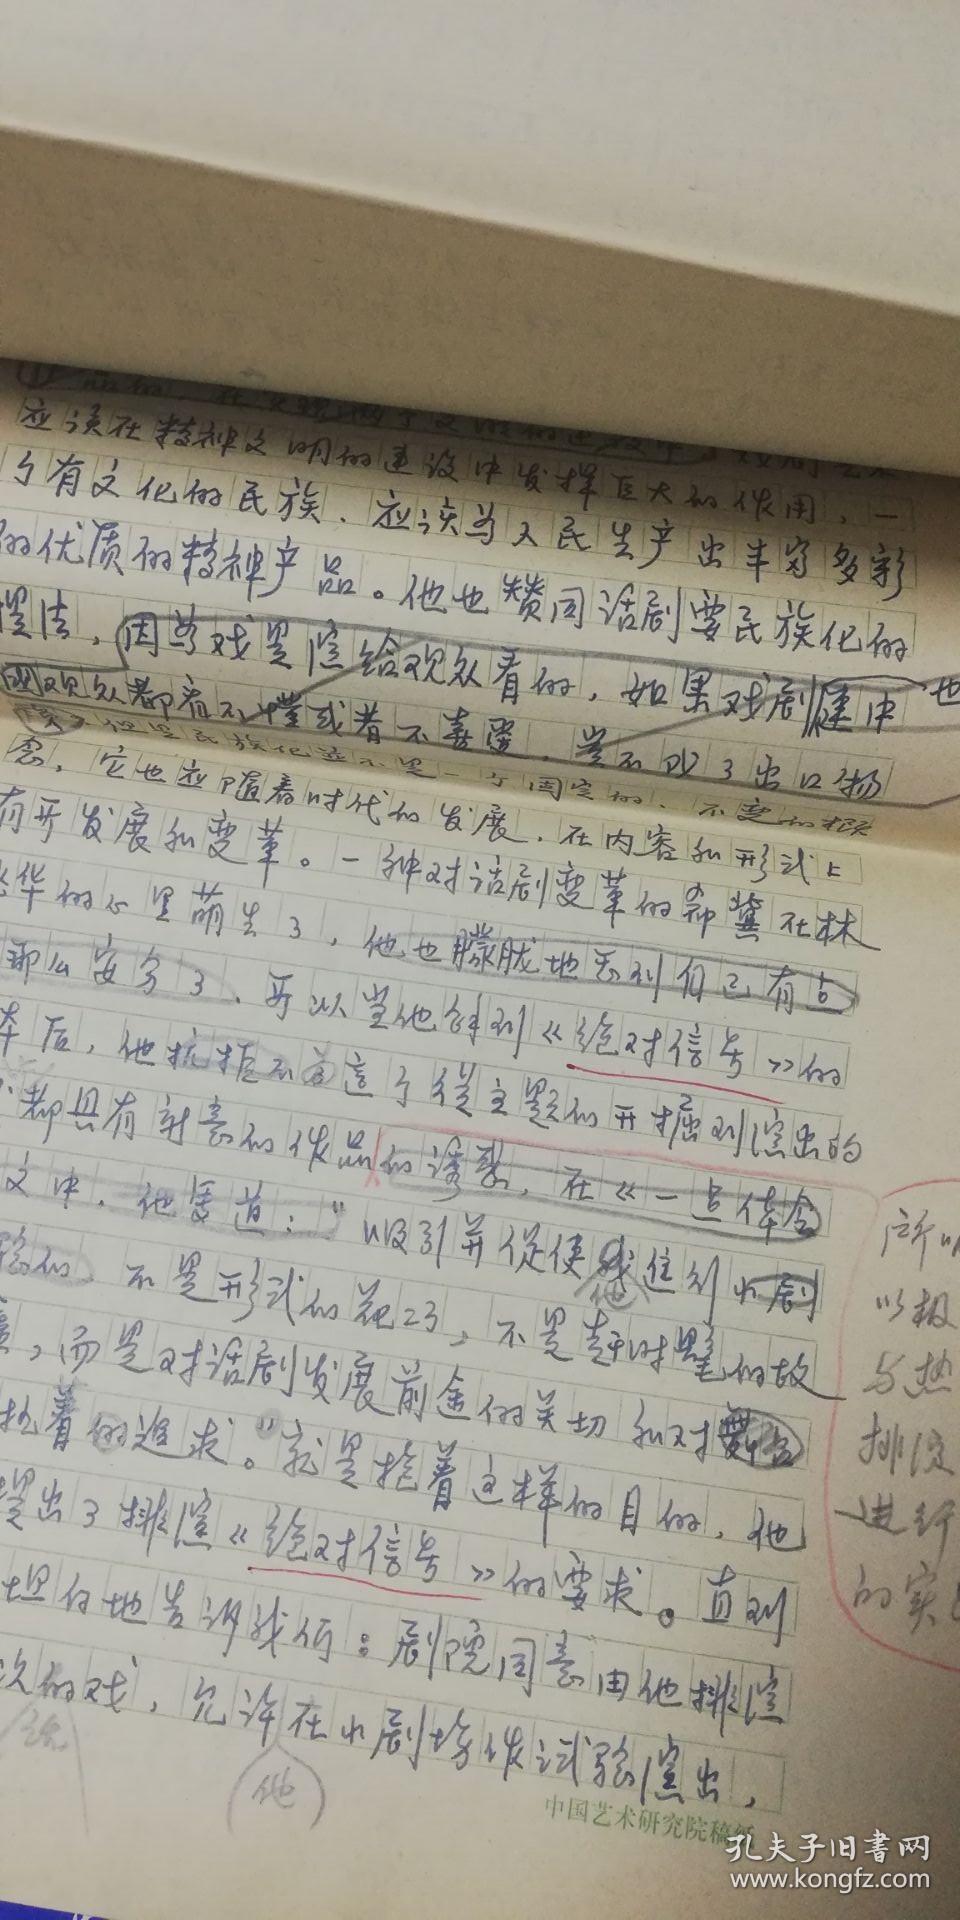 应该在精神文明的建设中发挥巨大的作用,一
个有文化的民族,应该为人民生产出丰富多彩
的优质的精神产品。他也赞同话剧要民族化的
因为戏是演给观众看的,如果戏剧
观众都看不懂或者不喜爱,岂不成了出口物
但是民族化并不是一个固定的、不变的
念,它也应随着时代的发展,在内容和形式上
有所发展和变革。一种对话剧变革的希冀在林
华的心里萌生了,他也朦胧地感到自己有点
那么安分了,所以当他拿到《绝对信号》的
本后,他抗拒不了这个从主题的开掘到演出的
都具有新意的作品的诱惑,在《一点体会
文中,他写道:“吸引并促使我进到小剧
的,不是形式的花巧,不是赶时髦的故
意,而是对话剧发展前途的关切和对
执着的追求。”就是抱着这样的目的,他
提出了排演《绝对信号》的要求。直到
坦白地告诉我们:剧院同意由他排演
次的戏,允许在小剧场作试验演出,
他
他
所以
以极
与热
排演
进行
的实
中国艺术研究院稿纸
孔夫子旧书网
www.kongfz.com